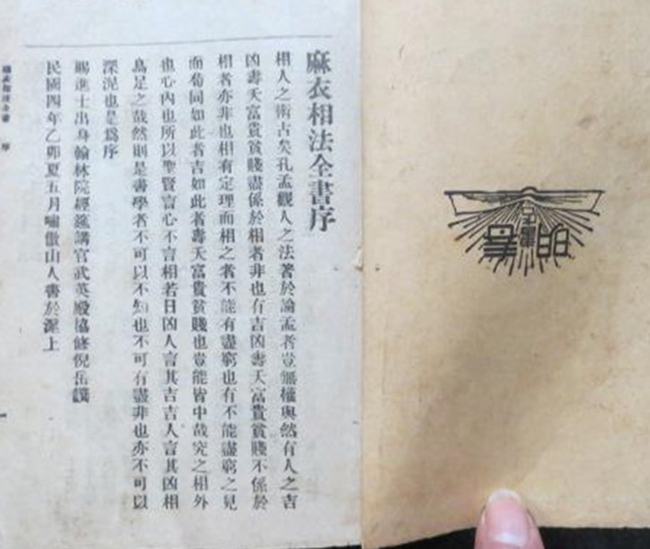 麻衣相法全書序
相人之術古矣孔孟觀人之法著於論孟者豈無權輿然有人之吉
凶壽夭富貴貧賤盡係於相者非也有吉凶壽夭富貴貧賤不係於
相者亦非也相有定理而相之者不能有盡窮也有不能盡窮之見
而苟同如此者吉如此者壽夭富貴貧賤也豈能皆中哉究之相外
也心內也所以聖賢言心不言相若日凶人言其吉吉人言其凶相
烏足之哉然則是書學者不可以不知也不可有盡非也亦不可以
深泥也是為序
賜進士出身翰林院經筵講官武英殿協修倪岳譔
民國四年乙卯夏五月嘯傲山人書於滬上
序